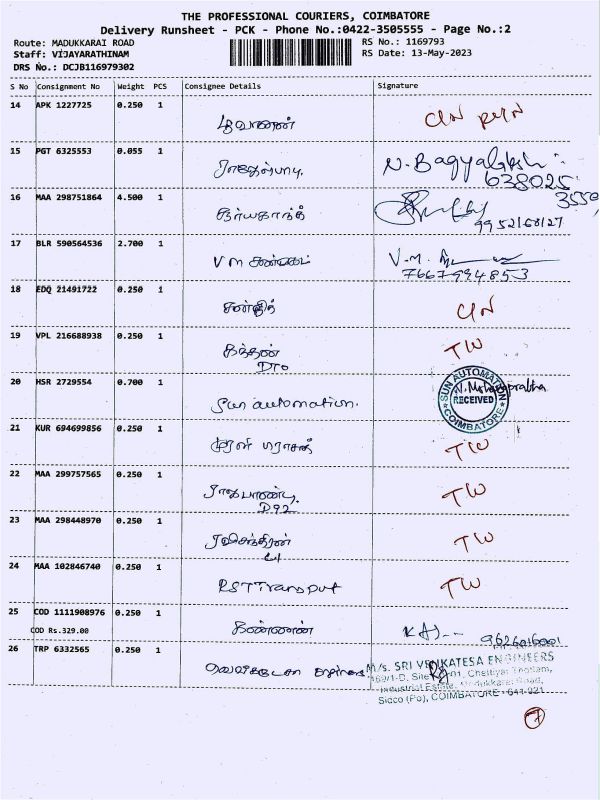 THE PROFESSIONAL COURIERS, COIMBATORE
Delivery Runsheet - PCK - Phone No.:0422-3505555 - Page No.:2
Route: MADUKKARAI ROAD
RS No.: 1169793
Staff: VIJAYARATHINAM
RS Date: 13-May-2023
DRS No.: DCJB116979302
S No Consignment No Weight PCS Consignee Details Signature
14 APK 1227725 0.250 1
15 PGT 6325553 0.055 1 N. Bagyalakshmi
638025
3550
16 MAA 298751864 4.500 1
9952168127
17 BLR 590564536 2.700 1 VM சண்முகம் V.M.
7667994853
18 EDQ 21491722 0.250 1
19 VPL 216688938 0.250 1 கந்தன் TW
DTO
20 HSR 2729554 0.700 1 Sun automation. SUN AUTOMATION RECEIVED COIMBATORE
21 KUR 694699856 0.250 1 TW
22 MAA 299757565 0.250 1 TW
D92
23 MAA 298448970 0.250 1 ரவிசந்திரன் TW
24 MAA 102846740 0.250 1 RST Transport TW
25 COD 1111908976 0.250 1 கண்ணன்
COD Rs.329.00
26 TRP 6332565 0.250 1
M/s. SRI VENKATESA ENGINEERS
Industrial Estate, Madukkarai Road,
Sidco (Po), COIMBATORE - 641 021
7